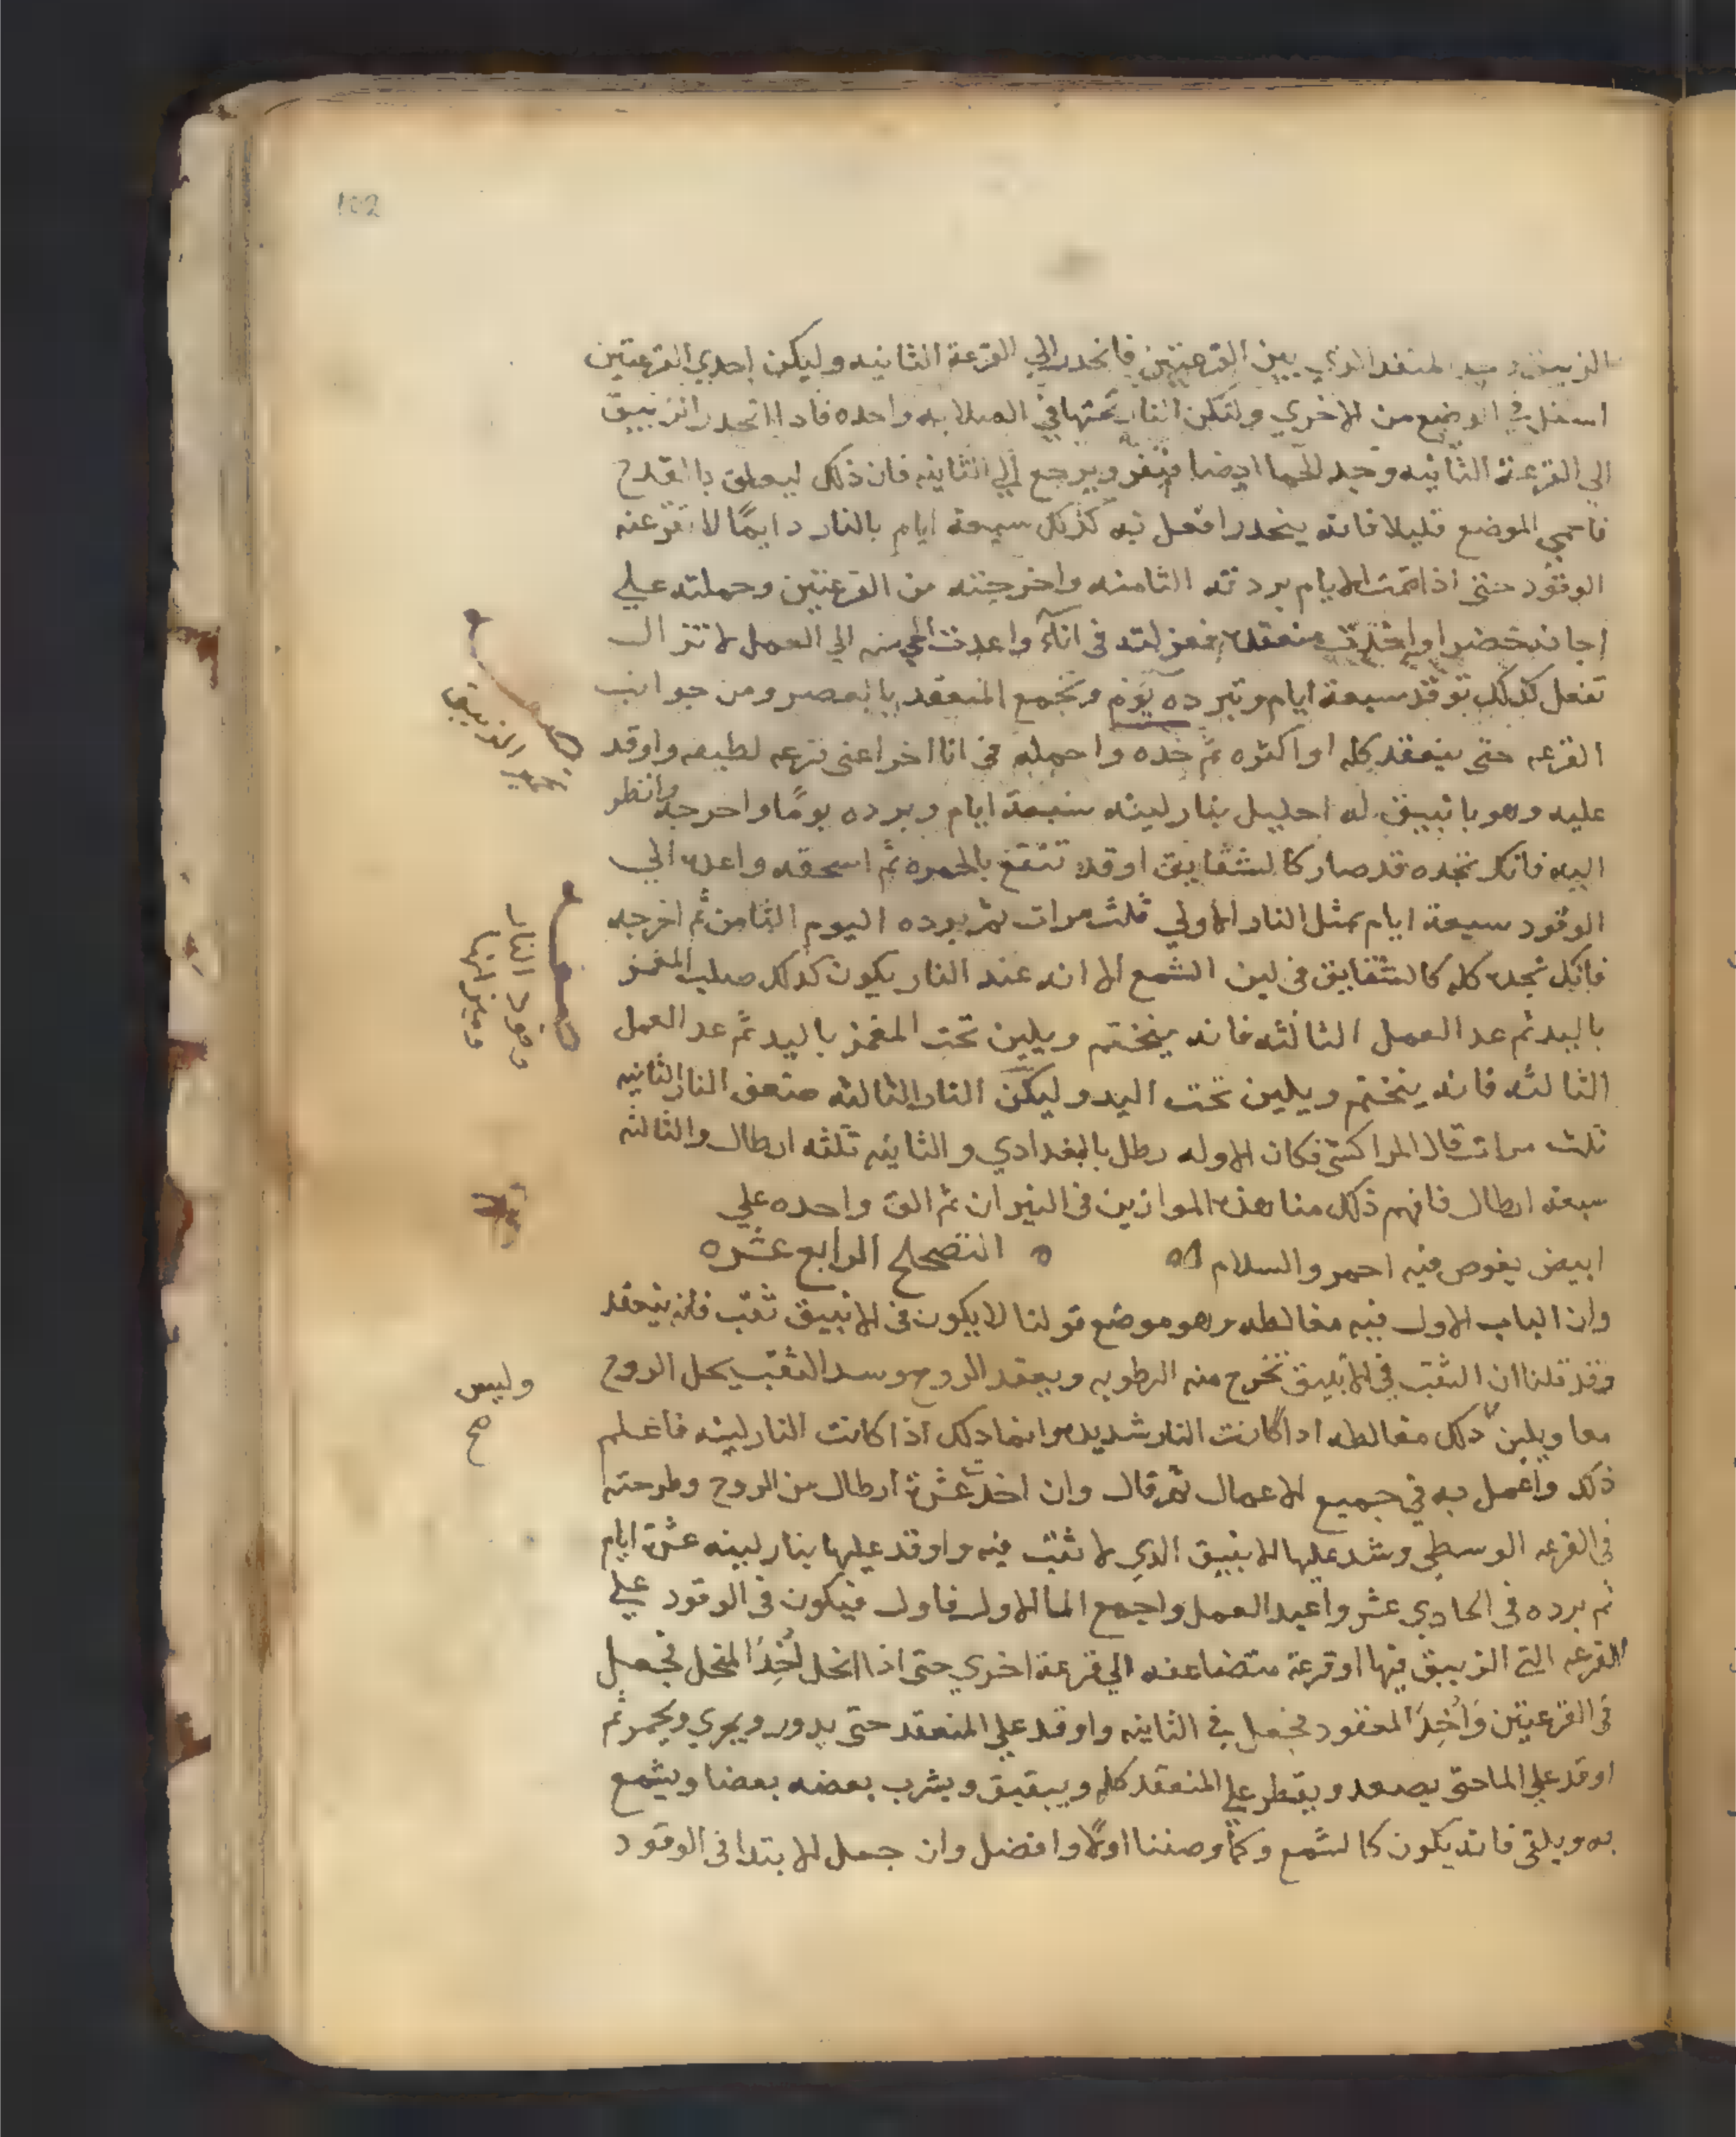 102
الزيبق المنفد الذي بين القرعتين فانحدر الي القرعة الثانيه وليكن احدي القرعتين
اسفل في الوضع من الاخري ولتكن النار تحتها في الصلابه واحده فاذا انحدر الزيبق
الي القرعة الثانيه وجد للحما ايضا فنفر ويرجع الي الثانيه فان ذلك ليعلق باالقدح
فاحمي الموضع قليلا فانه ينحدر افعل به كذلك سبعة ايام بالنار دايمًا لا تفتر عنه
الوقود حتي اذا تمت الايام بردته الثامنه واخرجته من القرعتين وحملته علي
اجانه خضرا واخذت منعقده فعزلته في انآء واعدت الحي منه الي العمل لا تزال
تفعل كذلك توقد سبعة ايام وتبرده يوم وتجمع المنعقد بالعصر ومن جوانب
القرعه حتي ينعقد كله او اكثره ثم خده واجمله في انا اخر اعني قرعه لطيفه واوقد
عليه وهو بانبيق له احليل بنار لينه سبعة ايام وبرده يومًا واخرجه وانظر
اليه فانك تجده قد صار كالشقايق اوقد تنقع بالحمره ثم اسحقه واعده الي
الوقود سبعة ايام بمثل النار الاولي ثلث مرات ثم برده اليوم الثامن ثم اخرجه
فانك تجده كله كالشقايق في لين الشمع الا انه عند النار يكون كذلك صليب المغمز
باليد ثم عد العمل الثالثه فانه ينختم ويلين تحت المغمز باليد ثم عد العمل
الثالثه فانه ينختم ويلين تحت اليد وليكن النار الثالثه ضعف النار الثانيه
ثلث مرات قال المراكشي فكان الاوله رطل بالبغدادي والثانيه ثلثه ارطال والثالثه
سبعه ارطال فافهم ذلك منا هذه الموازين في النيران ثم الق واحده علي
ابيض يغوص فيه احمر والسلام ه ه التصحيح الرابع عشره
وان الباب الاول فيه مغالطه وهو موضع قولنا لا يكون في الانبيق ثقب فانه ينعقد
وقد قلنا ان الثقب في الانبيق تخرج منه الرطوبه ويعقد الروح وسد الثقب يحل الروح
معا ويلين ذلك مغالطه اذا كانت النار شديده وانما ذلك اذا كانت النار لينه فاعلم
ذلك واعمل به في جميع الاعمال ثم قال وان اخذت عشرة ارطال من الروح وطرحته
في القرعه الوسطي وشد عليها الانبيق الذي لا ثقب فيه واوقد عليها بنار لينه عشرة ايام
ثم برده في الحادي عشر واعيد العمل واجمع الما الاول فاول فيكون في الوقود علي
القرعه التي الزيبق فيها او قرعة متضاعفه الي قرعة اخري حتي اذا انحل اُخِذَ المنحل فجعل
في القرعتين وَاُخِذَ المعقود فجعل في الثانيه واوقد علي المنعقد حتي يدور ويجري ويحمر ثم
اوقد علي الما حتي يصعد ويقطر علي المنعقد كله ويبقيق ويشرب بعضه بعضا ويشمع
به ويلقي فانه يكون كالشمع وكما وصفنا اولاً وافضل وان جعل للابتدا في الوقود
الزيبق
وقود النار
وليس
صح